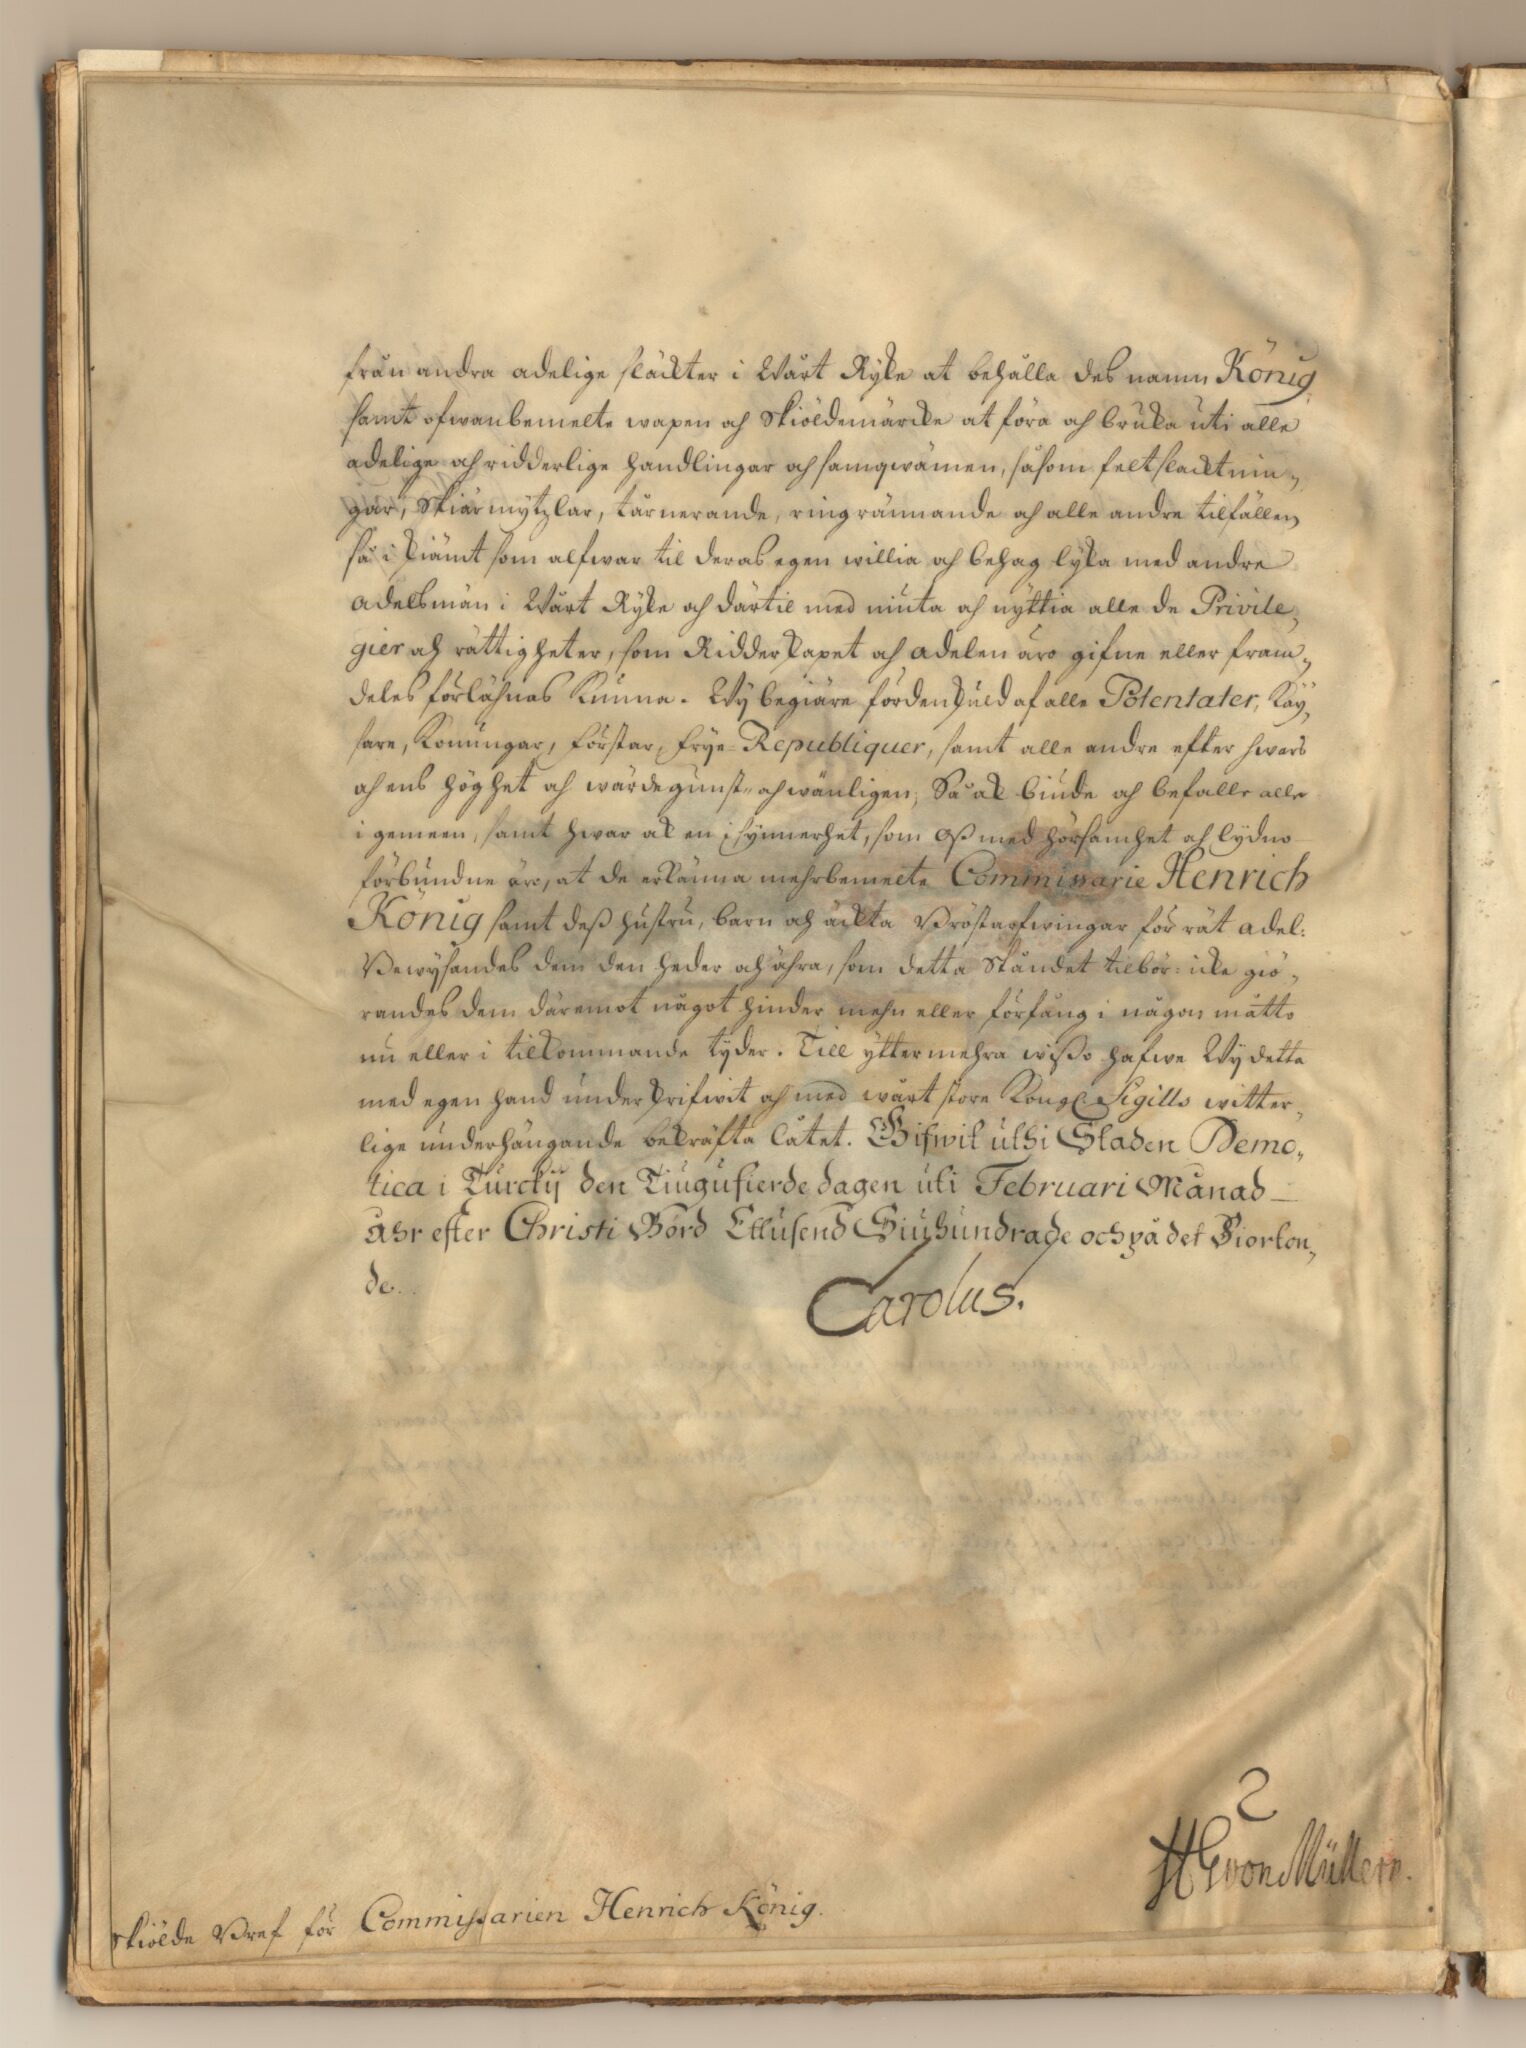 från andra adelige släckter i Wårt Ryke at behålla des namn König
samt ofwanbemelte wapen och Skiöldemärcke at föra och bruka uti alle
adelige och ridderlige handlingar och samqwämen, såsom feltslacktnin-
gar, Skiärmytzlar, tärnerande, ringrännande och alle andre tilfällen
så i skiämt som alfwar til deras egen willia och behag lyka med andre
adelsmän i Wårt Ryke och därtil med niuta och nyttia alle de Privile-
gier och rättigheter, som Ridderskapet och adelen äro gifne eller fram-
deles förlähnas kunna. Wy begiäre fördenskuld af alle Potentater, Käy-
sare, Konungar, Förstar, frye Republiquer, samt alle andre efter hwars
och ens höghet och wärde gunst- och wänligen, Så ock biude och befalle alle
i gemeen, samt hwar och en i synnerhet, som Oß med hörsamhet och lydno
förbundne äro, at de erkänna mehrbemelte Commissarie Henrich
König samt deß hustru, barn och äckta Bröstarfwingar för rät adel:
Bewysandes dem den heder och ähra, som detta Ståndet tilbör: icke giö-
randes dem däremot något hinder mehn eller förfång i någon måtto
nu eller i tilkommande tyder. Till yttermehra wißo hafwe Wy detta
med egen hand underskrifwit och med wårt store Kongl. Sigills witter-
lige underhängande bekräfta låtet. Gifwit uthi Staden Demo-
tica i Turckij den Tiugufierde dagen uti Februari Månad
Åhr efter Christi Börd Ettusend Siuhundrade och på det Fiorton-
de.
Carolus.
HG von Müllern.
Skiölde Bref för Commissarien Henrich König.